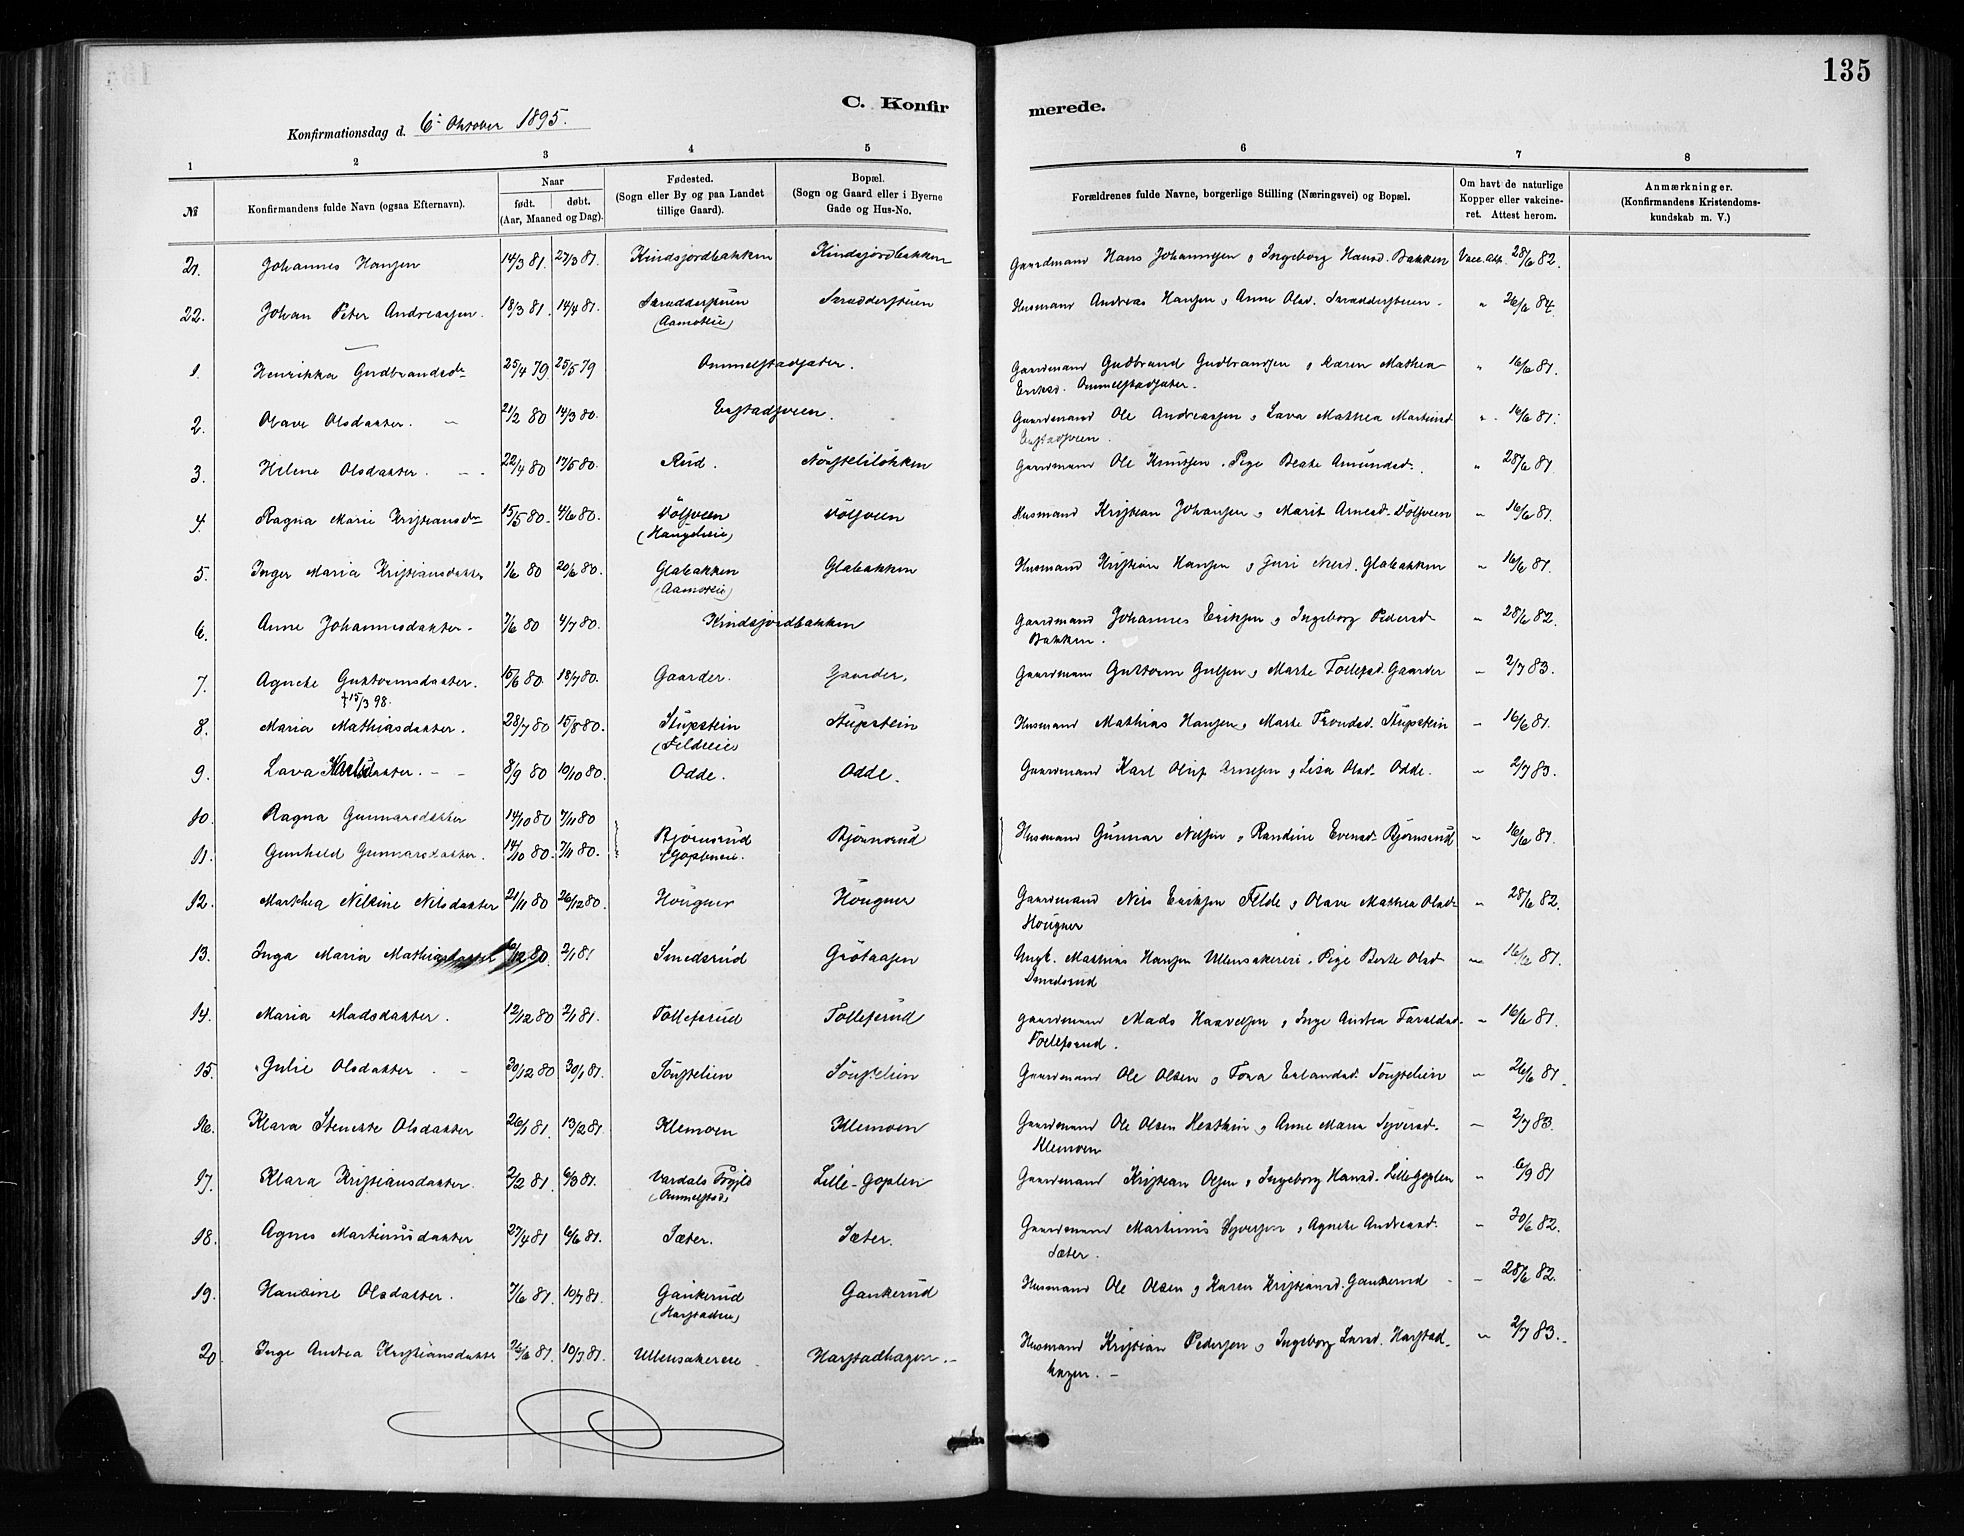 135
C. Konfirmerede.
Konfirmationsdag d. 6te Oktober 1895.
1 2 3 4 5 6 7 8
№
Konfirmandens fulde Navn (ogsaa Efternavn).
Naar
født. døbt.
(Aar, Maaned og Dag).
Fødested.
(Sogn eller By og paa Landet
tillige Gaard).
Bopæl.
(Sogn og Gaard eller i Byerne
Gade og Hus-No.
Forældrenes fulde Navne, borgerlige Stilling (Næringsvei) og Bopæl.
Om havt de naturlige
Kopper eller vakcine-
ret. Attest herom.
Anmærkninger.
(Konfirmandens Kristendoms-
kundskab m. V.)
21. Johannes Hansen 14/3 81. 27/3 81. Kindsjordbakken Kindsjordbakken Gaardmand Hans Johannesen, Ingeborg Hansd. Bakken Vacc. Att. 28/6 82.
22. Johan Peter Andreassen. 18/3 81. 14/4 81. Skræddersveen Skræddersveen Husmand Andreas Hansen, Anne Olsd. Skræddersveen. " 26/6 84.
(Aamoteie)
1. Henrikka Gudbrandsdr 25/4 79. 25/5 79 Ommelstadsæter. Gaardmand Gudbrand Gudbrandsen, Karen Mathea " 16/6 81.
Eriksd. Ommelstadsæter.
2. Olave Olsdatter. 21/2 80 14/3 80. Enstadsveen. Gaardmand Ole Andreassen, Lava Mathea Martinsd " 16/6 81.
Enstadsveen.
3. Helene Olsdatter. 22/4 80 17/5 80. Rud. Gaardmand Ole Knutsen, Pige Beate Amundsd. " 28/6 81.
4. Ragna Marie Kristiansdr 15/5 80. 4/6 80. Volsveen Volsveen Husmand Kristian Johansen, Marit Arnesd. Volsveen " 16/6 81.
5. Inger Maria Kristiansdatter 1/6 80 20/6 80. Glabakken Glabakken Husmand Kristian Hansen, Guri Nilsd. Glabakken " 16/6 81.
(Aamoteie)
6. Anne Johannesdatter. 7/6 80 4/7 80. Kindsjordbakken Gaardmand Johannes Eriksen, Ingeborg Pedersd. " 28/6 82.
Bakken.
7. Agnete Guttormsdatter. 15/6 80. 18/7 80. Gaarder. Gaarder. Gaardmand Guttorm Gulsen, Marte Tollefsd. Gaarder " 2/7 83.
†15/3 98.
8. Maria Mathiasdatter. 28/7 80 15/8 80. Stupstein Stupstein Husmand Mathias Hansen, Marte Trondsd. Stupstein " 16/6 81.
(Feldeeie)
9. Lava Karlsdatter. 8/9 80 10/10 80. Odde. Odde. Gaardmand Karl Oluf Arnesen, Lisa Olsd. Odde. " 2/7 83.
10. Ragna Gunnarsdatter 14/10 80 7/11 80
11. Gunhild Gunnarsdatter. 14/10 80. 7/11 80. Bjørnsrud Bjørnsrud Husmand Gunnar Nilsen, Randine Evensd. Bjørnsrud " 16/6 81.
12. Marthea Nilsine Nilsdatter 21/11 80 26/12 80. Hougner Hougner Gaardmand Nils Eriksen Felde, Olave Mathea Olsd. " 28/6 82.
Hougner
13. Inga Maria Mathiasdatter 2/1 81 Smedsrud Grötaasen Ungk. Mathias Hansen Ullensakereie. Pige Berte Olsd. " 16/6 81.
Smedsrud
14. Maria Madsdatter. 12/12 80 2/1 81. Tollefsrud Tollefsrud Gaardmand Mads Haavelsen, Inge Antea Haraldsd. " 16/6 81.
Tollefsrud.
15. Julie Olsdatter. 30/12 80 30/1 81. Sönstelien Sönstelien Gaardmand Ole Olsen, Tora Erlandsd. Sönstelien " 26/6 81.
16. Klara Stenette Olsdatter 26/1 81. 13/2 81. Klemoen Klemoen Gaardmand Ole Olsen, Anne Maria Syversd. " 2/7 83.
Klemoen
17. Klara Kristiansdatter. 2/2 81. 6/3 81. Lille-Goplen Gaardmand Kristian Olsen, Ingeborg Hansd. Lille-Goplen " 6/9 81
(Ommelstad)
18. Agnes Martinusdatter 27/4 81 6/6 81. Sæter. Sæter. Gaardmand Martinus Syversen, Agnete Andreasd. " 30/6 82.
Sæter.
19. Hansine Olsdatter. 7/6 81. 10/7 81. Gaukerud Gaukerud Husmand Ole Olsen, Karen Kristiansd. Gaukerud " 28/6 82.
(Harstadeie)
20. Inge Antea Kristiansdatter 26/6 81. 10/7 81. Ullensakereie Harstadhagen. Husmand Kristian Pedersen, Ingeborg Larsd. Harstad- " 2/7 83.
hagen.